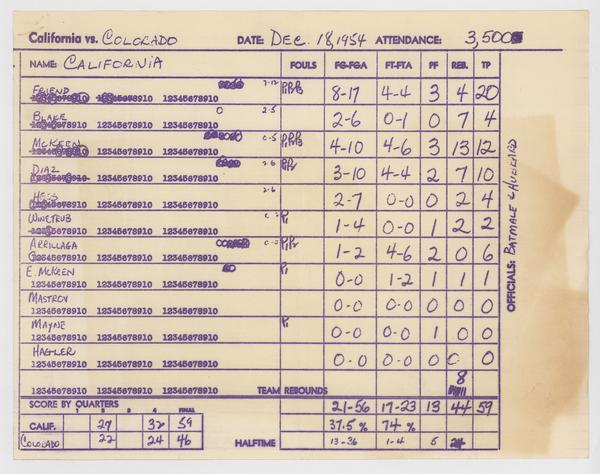 California vs. COLORADO DATE: DEC. 18, 1954 ATTENDANCE: 3,500
NAME: CALIFORNIA FOULS FG-FGA FT-FTA PF REB. TP
FRIEND 7-12 P1P2P3 8-17 4-4 3 4 20
12345678910 12345678910 12345678910
BLAKE 2-5 2-6 0-1 0 7 4
12345678910 12345678910 12345678910
MCKEEN 0-5 P1P2P3 4-10 4-6 3 13 12
12345678910 12345678910 12345678910
DIAZ 2-6 P1P2 3-10 4-4 2 7 10
12345678910 12345678910 12345678910
HESS 2-6 2-7 0-0 0 2 4
12345678910 12345678910 12345678910
WINETRUB P1 1-4 0-0 1 2 2
12345678910 12345678910 12345678910
ARRILLAGA P1P2 1-2 4-6 2 0 6
12345678910 12345678910 12345678910
E. MCKEEN P1 0-0 1-2 1 1 1
12345678910 12345678910 12345678910
MASTROV 0-0 0-0 0 0 0
12345678910 12345678910 12345678910
MAYNE P1 0-0 0-0 1 0 0
12345678910 12345678910 12345678910
HAGLER 0-0 0-0 0 0 0
12345678910 12345678910 12345678910
8
12345678910 12345678910 12345678910 TEAM REBOUNDS
SCORE BY QUARTERS 21-56 17-23 13 44 59
1 2 3 4 FINAL
CALIF. 27 32 59 37.5 % 74 %
COLORADO 22 24 46 HALFTIME 13-36 1-4 5 24
OFFICIALS: BATMALE &